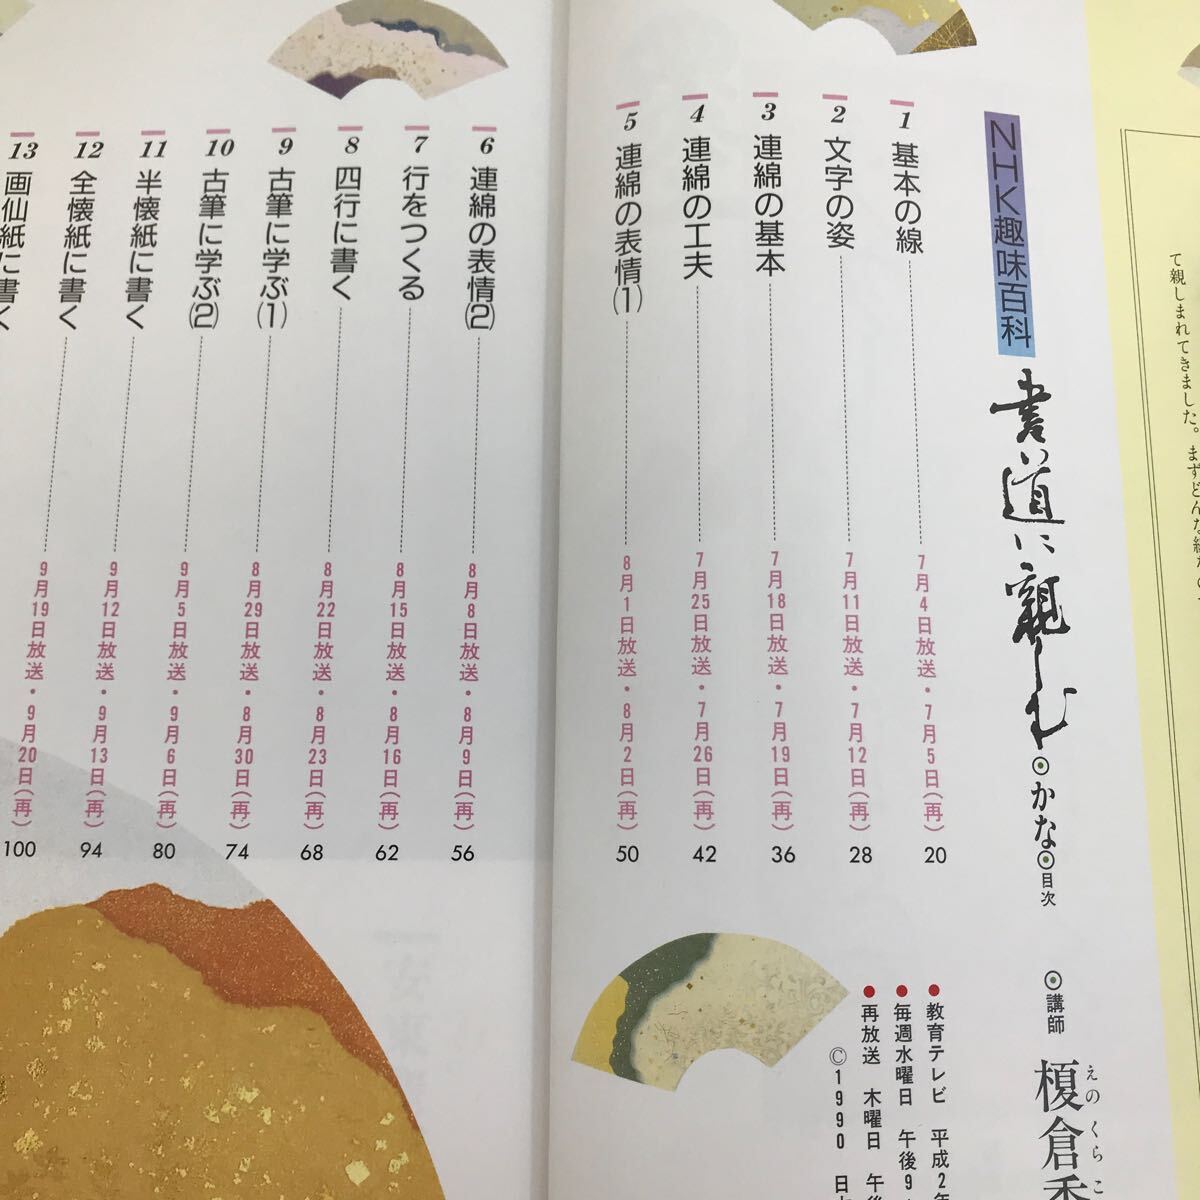 NHK趣味百科
書道に親しむ
かな
目次
講師
えのくらこ
榎倉香
1 基本の線 7月4日放送・7月5日(再) 20
2 文字の姿 7月11日放送・7月12日(再) 28
3 連綿の基本 7月18日放送・7月19日(再) 36
4 連綿の工夫 7月25日放送・7月26日(再) 42
5 連綿の表情(1) 8月1日放送・8月2日(再) 50
6 連綿の表情(2) 8月8日放送・8月9日(再) 56
7 行をつくる 8月15日放送・8月16日(再) 62
8 四行に書く 8月22日放送・8月23日(再) 68
9 古筆に学ぶ(1) 8月29日放送・8月30日(再) 74
10 古筆に学ぶ(2) 9月5日放送・9月6日(再) 80
11 半懐紙に書く 9月12日放送・9月13日(再) 94
12 全懐紙に書く 9月19日放送・9月20日(再) 100
13 画仙紙に書く
●教育テレビ 平成2年
●毎週水曜日 午後9
●再放送 木曜日 午後
©1990 日
て親しまれてきました。まずどんな